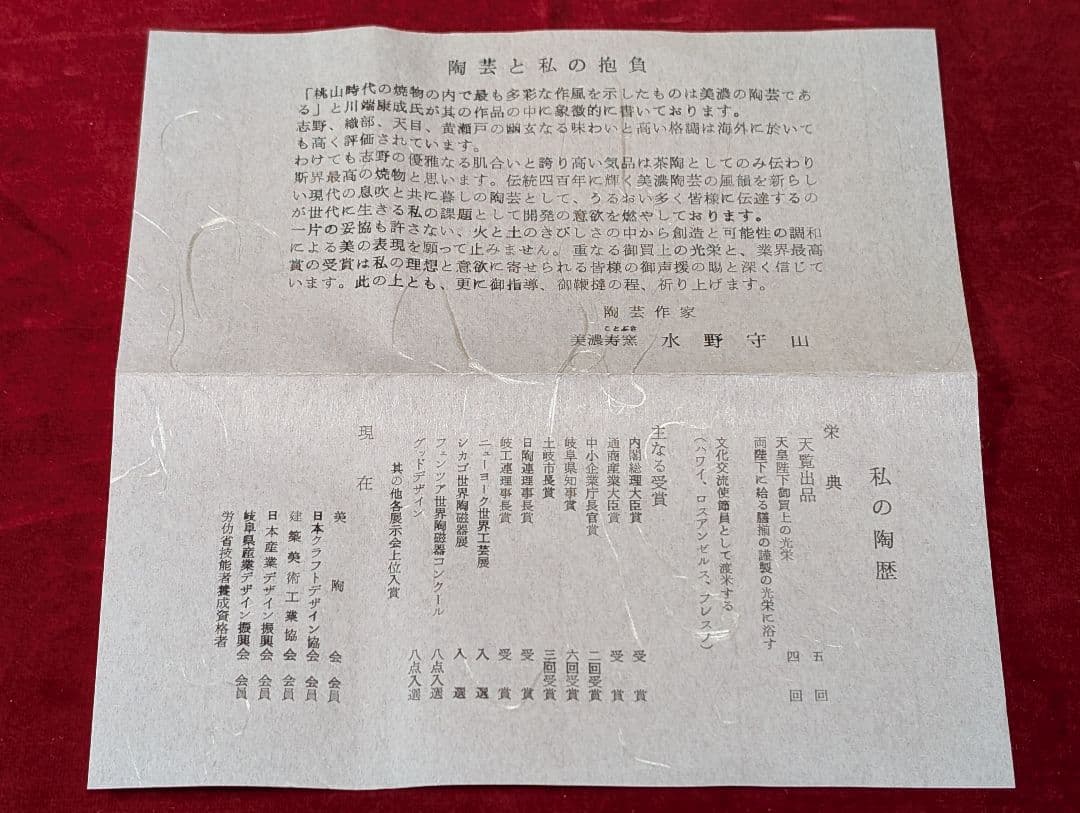 陶芸と私の抱負
「桃山時代の焼物の内で最も多彩な作風を示したものは美濃の陶芸であ
る」と川端康成氏が其の作品の中に象徴的に書いております。
志野、織部、天目、黄瀬戸の幽玄なる味わいと高い格調は海外に於いて
も高く評価されています。
わけても志野の優雅なる肌合いと誇り高い気品は茶陶としてのみ伝わり
斯界最高の焼物と思います。伝統四百年に輝く美濃陶芸の風韻を新らし
い現代の息吹と共に暮しの陶芸として、うるおい多く皆様に伝達するの
が世代に生きる私の課題として開発の意欲を燃やしております。
一片の妥協も許さない、火と土のきびしさの中から創造と可能性の調和
による美の表現を願って止みません。重なる御買上の光栄と、業界最高
賞の受賞は私の理想と意欲に寄せられる皆様の御声援の賜と深く信じて
います。此の上とも、更に御指導、御鞭撻の程、祈り上げます。
陶芸作家
ことぶき
美濃寿窯 水野守山
私の陶歴
栄典
天覧出品 五回
天皇陛下御買上の光栄 四回
両陛下に給る膳揃の謹製の光栄に浴す
文化交流使節員として渡米する
(ハワイ、ロスアンゼルス、フレスノ)
主なる受賞
内閣総理大臣賞 受賞
通商産業大臣賞 受賞
中小企業庁長官賞 二回受賞
岐阜県知事賞 六回受賞
土岐市長賞 三回受賞
日陶連理事長賞 受賞
岐工連理事長賞 受賞
ニューヨーク世界工芸展 入選
シカゴ世界陶磁器展 入選
フェンツア世界陶磁器コンクール 八点入選
グッドデザイン 八点入選
其の他各展示会上位入賞
現在
美陶会 会員
日本クラフトデザイン協会 会員
建築美術工業協会 会員
日本産業デザイン振興会 会員
岐阜県産業デザイン振興会 会員
労仂省技能者養成資格者